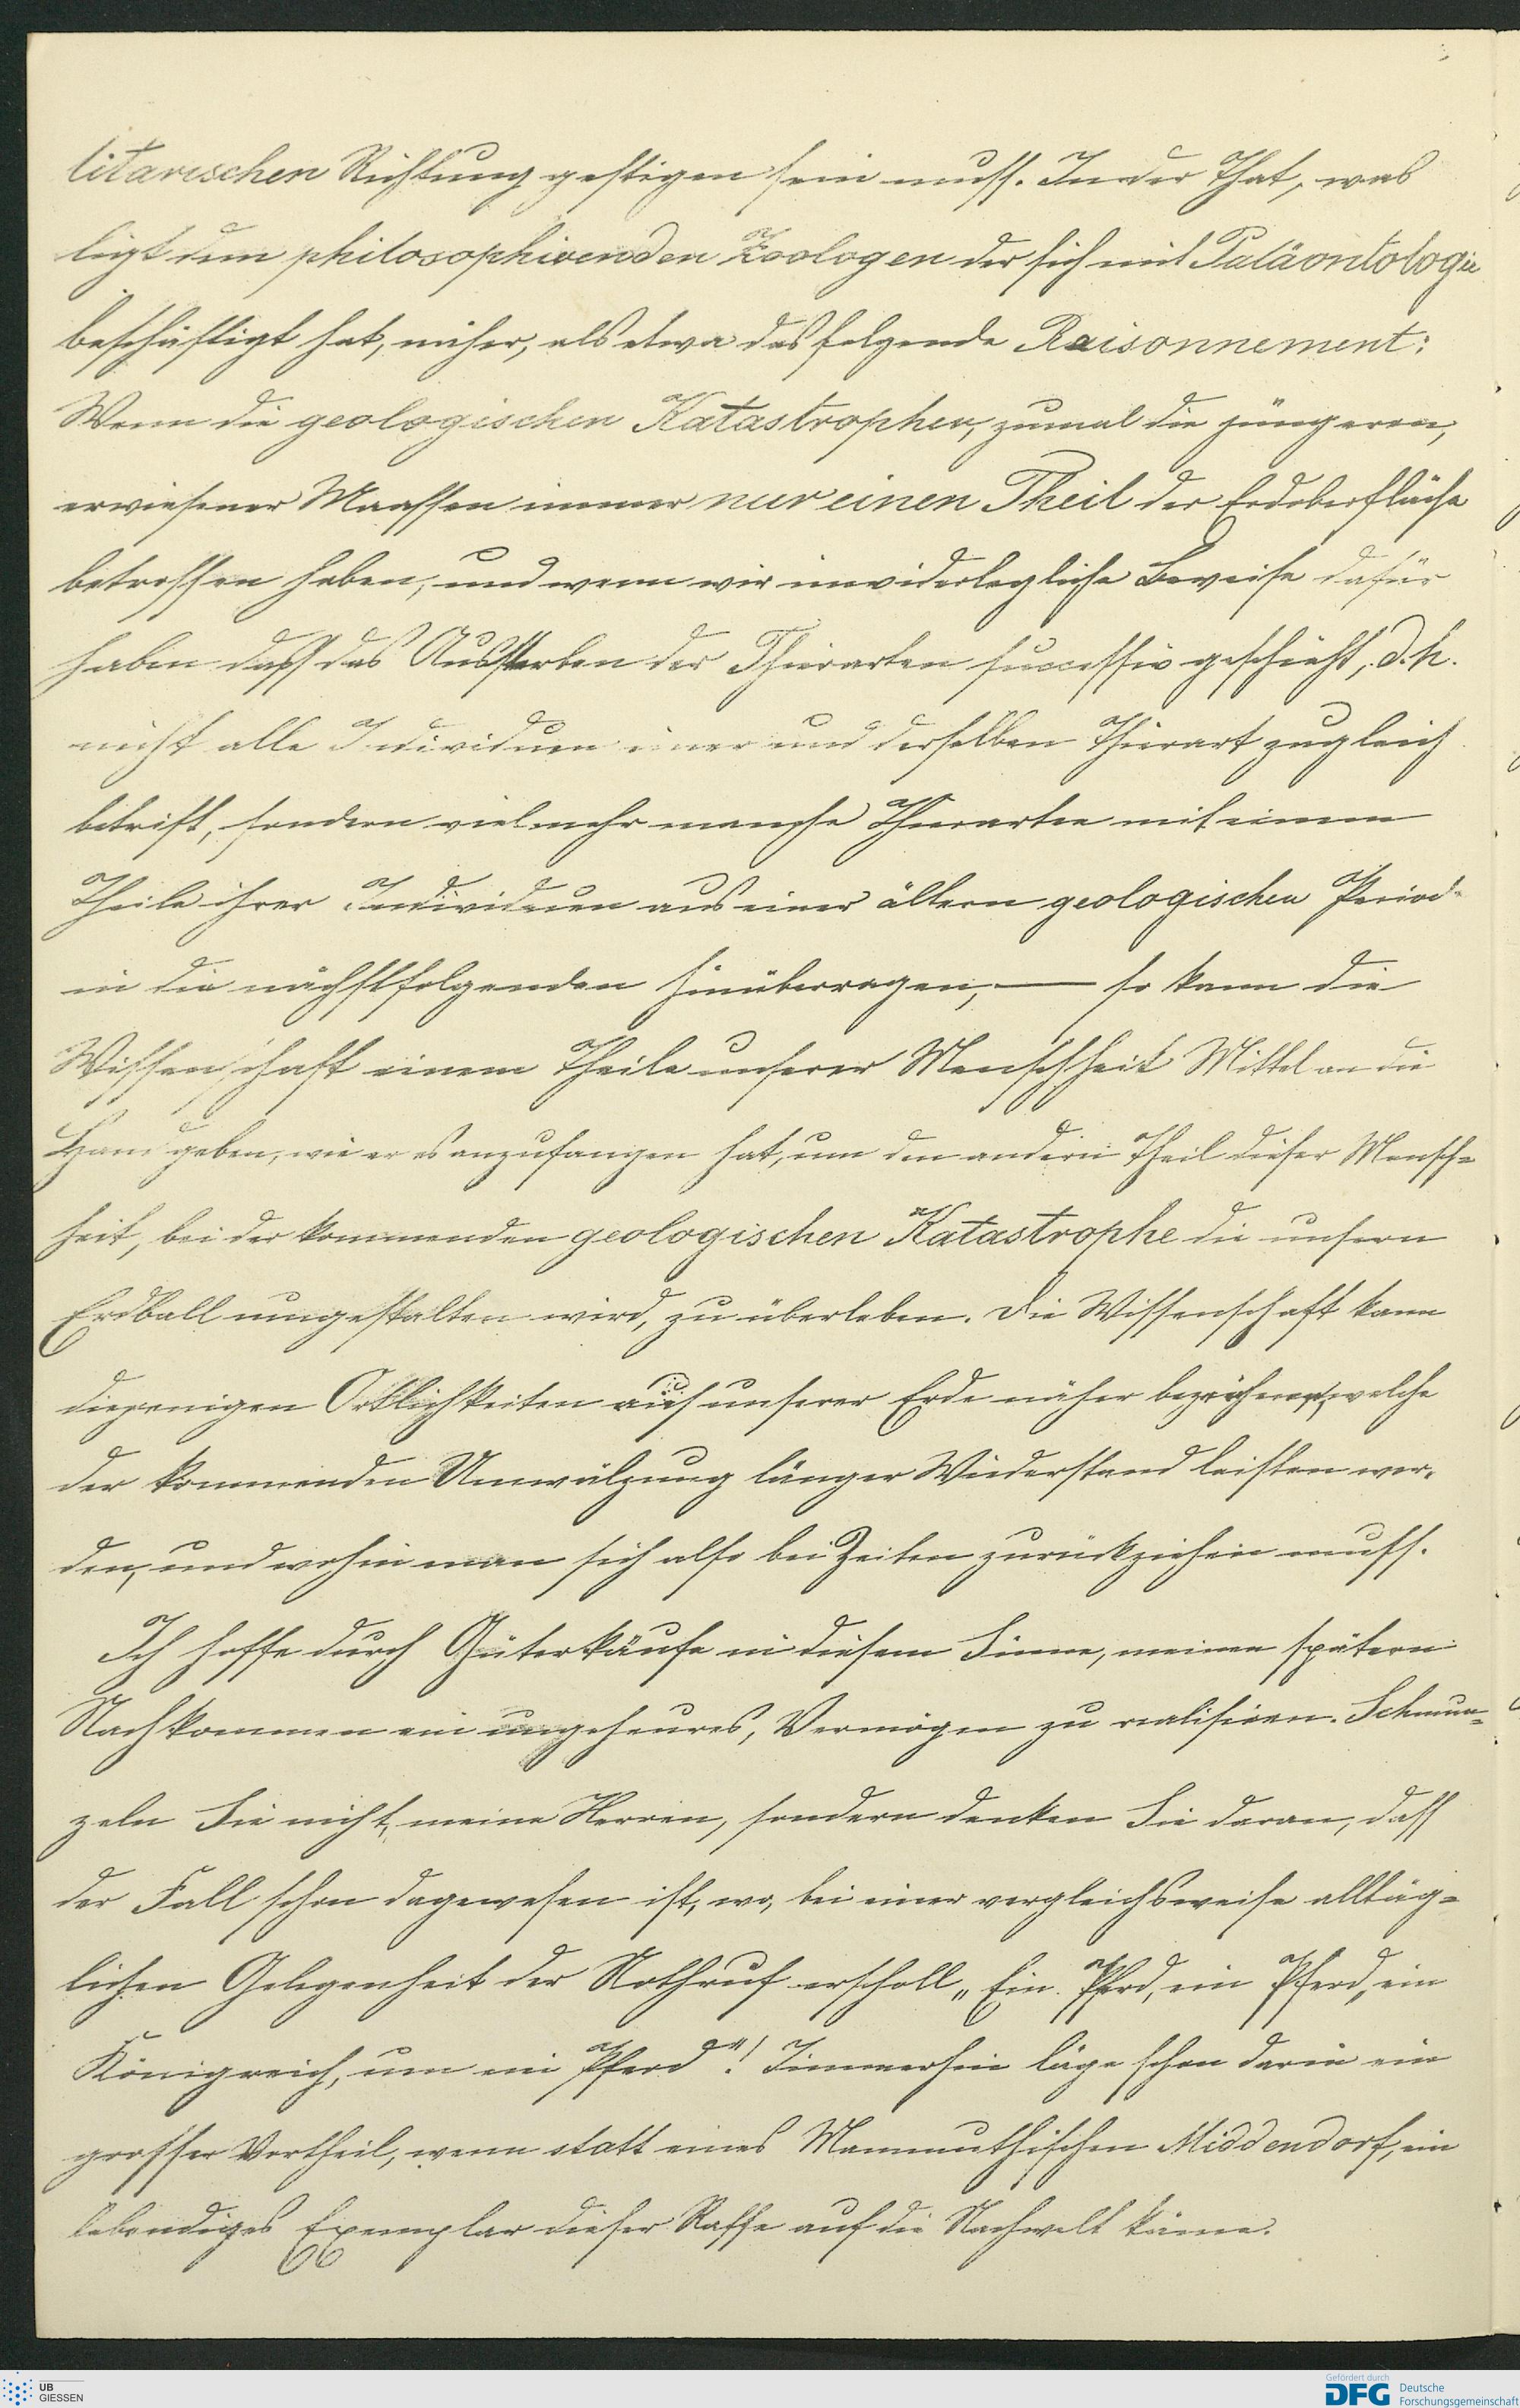 litarischen Richtung gestigen sein muss. In der That, was
ligt dem philosophirenden Zoologen der sich mit Paläontologie
beschäftigt hat, näher, als etwa das folgende Raisonnement:
Wenn die geologischen Katastrophen, zumal die jüngeren,
erwiesener Maassen immer nur einen Theil der Erdoberfläche
betroffen haben, und wenn wir unwiderlegliche Beweise dafür
haben dass das Aussterben der Thierarten successiv geschieht, d.h.
nicht alle Individuen einer und derselben Thierart zugleich
betrift, sondern vielmehr manche Thierarten mit einem
Theile ihrer Individuen aus einer ältern geologischen Period
in die nächstfolgenden hinüberragen, — so kann die
Wissenschaft einem Theile unserer Menschheit Mittel an die
Hand geben, wie er es anzufangen hat, um den andern Theil dieser Mensch=
heit, bei der kommenden geologischen Katastrophe die unsern
Erdball umgestalten wird, zu überleben. Die Wissenschaft kann
diejenigen Örtlichkeiten auf unserer Erde näher welche
der kommenden Umwälzung länger Wiederstand leisten wer-
den, und wohin man sich also bei Zeiten zurückziehen muss.
Ich hoffe durch Güterkäufe in diesem Sinne, meinen spätern
Nachkommen ein ungeheures, Vermögen zu realisiren. Schmun=
zeln Sie nicht, meine Herren, sondern denken Sie daran, dass
der Fall schon dagewesen ist, wo, bei einer vergleichsweise alltäg=
lichen Gelegenheit der Nothruf erscholl „Ein Pferd, ein Pferd, ein
Königreich, um ein Pferd"! Immerhin läge schon darin ein
grosser Vortheil, wenn statt eines Mammuthischen Middendorf, ein
lebendiges Exemplar dieser Rasse auf die Nachwelt käme.
UB
GIESSEN
Gefördert durch
DFG Deutsche
Forschungsgemeinschaft